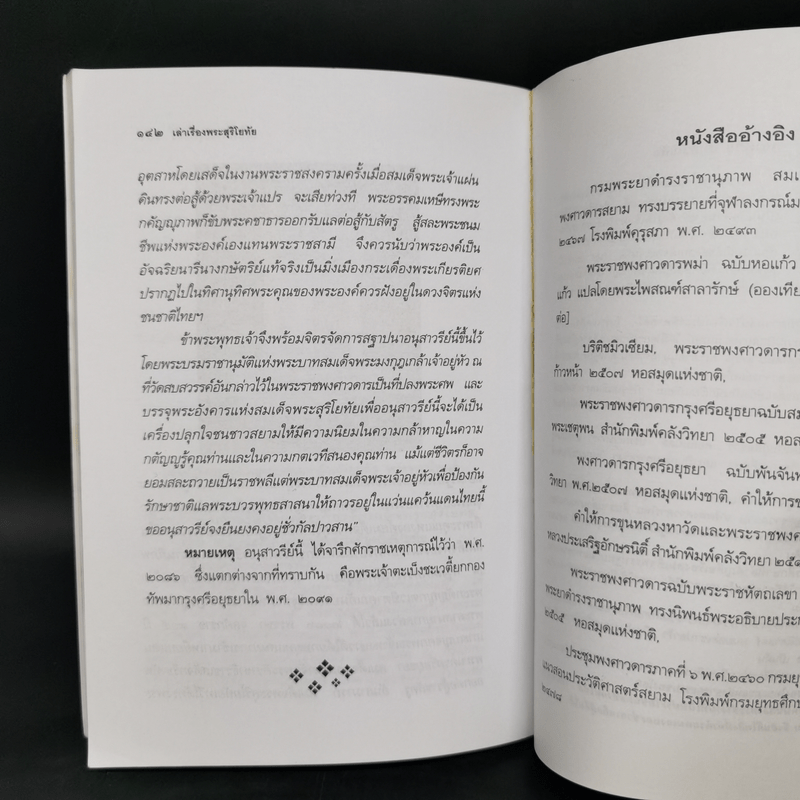 ๑๔๒ เล่าเรื่องพระสุริโยทัย
อุตสาหโดยเสด็จในงานพระราชสงครามครั้งเมื่อสมเด็จพระเจ้าแผ่น
ดินทรงต่อสู้ด้วยพระเจ้าแปร จะเสียท่วงที พระอรรคมเหษีทรงพระ
กคัญญุภาพก็ขับพระคชาธารออกรับแลต่อสู้กับสัตรู สู้สละพระชนม
ชีพแห่งพระองค์เองแทนพระราชสามี จึงควรนับว่าพระองค์เป็น
อัจฉริยนารีนางกษัตริย์แท้จริงเป็นมิ่งเมืองกระเดื่องพระเกียรติยศ
ปรากฏไปในทิศานุทิศพระคุณของพระองค์ควรฝังอยู่ในดวงจิตรแห่ง
ชนชาติไทยฯ
ข้าพระพุทธเจ้าจึงพร้อมจิตรจัดการสฐาปนาอนุสาวรีย์นี้ขึ้นไว้
โดยพระบรมราชานุมัติแห่งพระบาทสมเด็จพระมงกุฎเกล้าเจ้าอยู่หัว ณ
ที่วัดสบสวรรค์อันกล่าวไว้ในพระราชพงศาวดารเป็นที่ปลงพระศพ และ
บรรจุพระอังคารแห่งสมเด็จพระสุริโยทัยเพื่ออนุสาวรีย์นี้จะได้เป็น
เครื่องปลุกใจชนชาวสยามให้มีความนิยมในความกล้าหาญในความ
กตัญญูรู้คุณท่านและในความกตเวทีสนองคุณท่าน แม้แต่ชีวิตรก็อาจ
ยอมสละถวายเป็นราชพลีแต่พระบาทสมเด็จพระเจ้าอยู่หัวเพื่อป้องกัน
รักษาชาติแลพระบวรพุทธสาสนาให้ถาวรอยู่ในแว่นแคว้นแดนไทยนี้
ขออนุสาวรีย์จงยืนยงคงอยู่ชั่วกัลปาวสาน"
หมายเหตุ อนุสาวรีย์นี้ ได้จารึกศักราชเหตุการณ์ไว้ว่า พ.ศ.
๒๐๘๖ ซึ่งแตกต่างจากที่ทราบกัน คือพระเจ้าตะเบ็งชะเวตี้ยกกอง
ทัพมากรุงศรีอยุธยาใน พ.ศ. ๒๐๙๑
หนังสืออ้างอิง
กรมพระยาดำรงราชานุภาพ สมเ
พงศาวดารสยาม ทรงบรรยายที่จุฬาลงกรณ์ม
๒๔๖๗ โรงพิมพ์คุรุสภา พ.ศ. ๒๔๙๓
พระราชพงศาวดารพม่า ฉบับหอแก้ว
แก้ว แปลโดยพระไพสณฑ์สาลารักษ์ (อองเทีย
ต่อ]
บริติชมิวเซียม, พระราชพงศาวดารก
ก้าวหน้า ๒๕๐๗ หอสมุดแห่งชาติ,
พระราชพงศาวดารกรุงศรีอยุธยาฉบับสม
พระเชตุพน สำนักพิมพ์คลังวิทยา ๒๕๐๕ หอส
พงศาวดารกรุงศรีอยุธยา ฉบับพันจันท
วิทยา พ.ศ.๒๕๐๗ หอสมุดแห่งชาติ, คำให้การข
คำให้การขุนหลวงหาวัดและพระราชพงศ
หลวงประเสริฐอักษรนิติ์ สำนักพิมพ์คลังวิทยา ๒๕๑
พระราชพงศาวดารฉบับพระราชหัตถเลขา
พระยาดำรงราชานุภาพ ทรงนิพนธ์พระอธิบายประก
๒๕๐๕ หอสมุดแห่งชาติ,
ประชุมพงศาวดารภาคที่ ๖ พ.ศ.๒๔๖๐ กรมยุ
แนวสอนประวัติศาสตร์สยาม โรงพิมพ์กรมยุทธศึก
๒๔๗๘